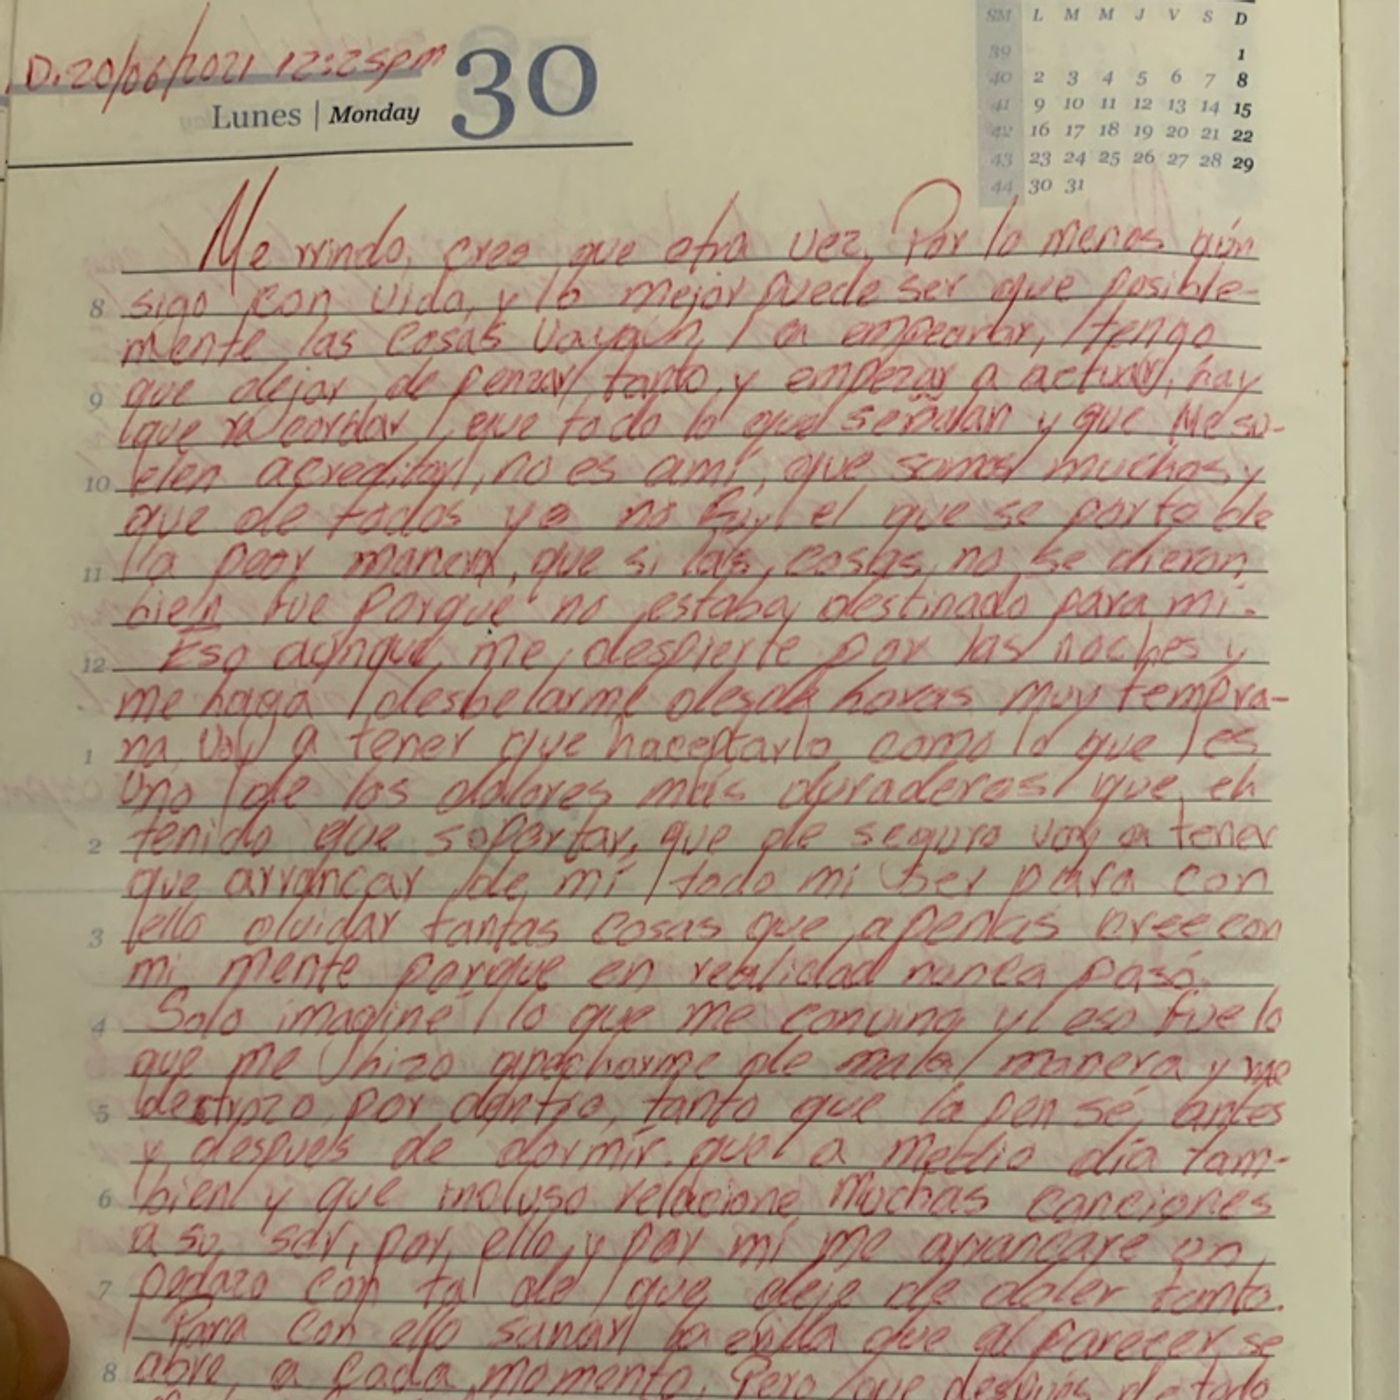 D. 20/06/2021 12:25pm
Lunes | Monday 30
SM L M M J V S D
39 1
40 2 3 4 5 6 7 8
41 9 10 11 12 13 14 15
42 16 17 18 19 20 21 22
43 23 24 25 26 27 28 29
44 30 31
Me rrindo, creo que otra vez, Por lo menos aún
8 sigo con vida, y lo mejor puede ser que posible-
mente las cosas vayan a empeorar, tengo
9 que dejar de penzar tanto, y empezar a actuar, hay
que recordar, que todo lo que señalan y que me su-
10 elen acreditar, no es amí, que somos muchos y
que de todos yo no fuy el que se porto de
11 la peor manera, que si las cosas no se dieron
bien fue porque no estaba destinado para mi.
12 Eso aunque me despierte por las noches y
me haga desbelarme desde horas muy tempra-
1 na, voy a tener que haceptarlo como lo que es
Uno de los dolores más duraderos que eh
2 tenido que soportar, que de seguro voy a tener
que arrancar de mí todo mi ser para con
3 ello olvidar tantas cosas que apenas cree con
mi mente porque en realidad nunca pasó.
4 Solo imaginé lo que me convino y eso fue lo
que me hizo me de mala manera y me
5 destrozo por dentro, tanto que la pensé antes
y después de dormir, que a medio día tam-
6 bien y que incluso relacione muchas canciones
a su ser, por ello, y por mí me arrancare un
7 pedazo con tal de que deje de doler tanto.
Para con ello sanar la que al parecer se
8 abre a cada momento. Pero que después de todo